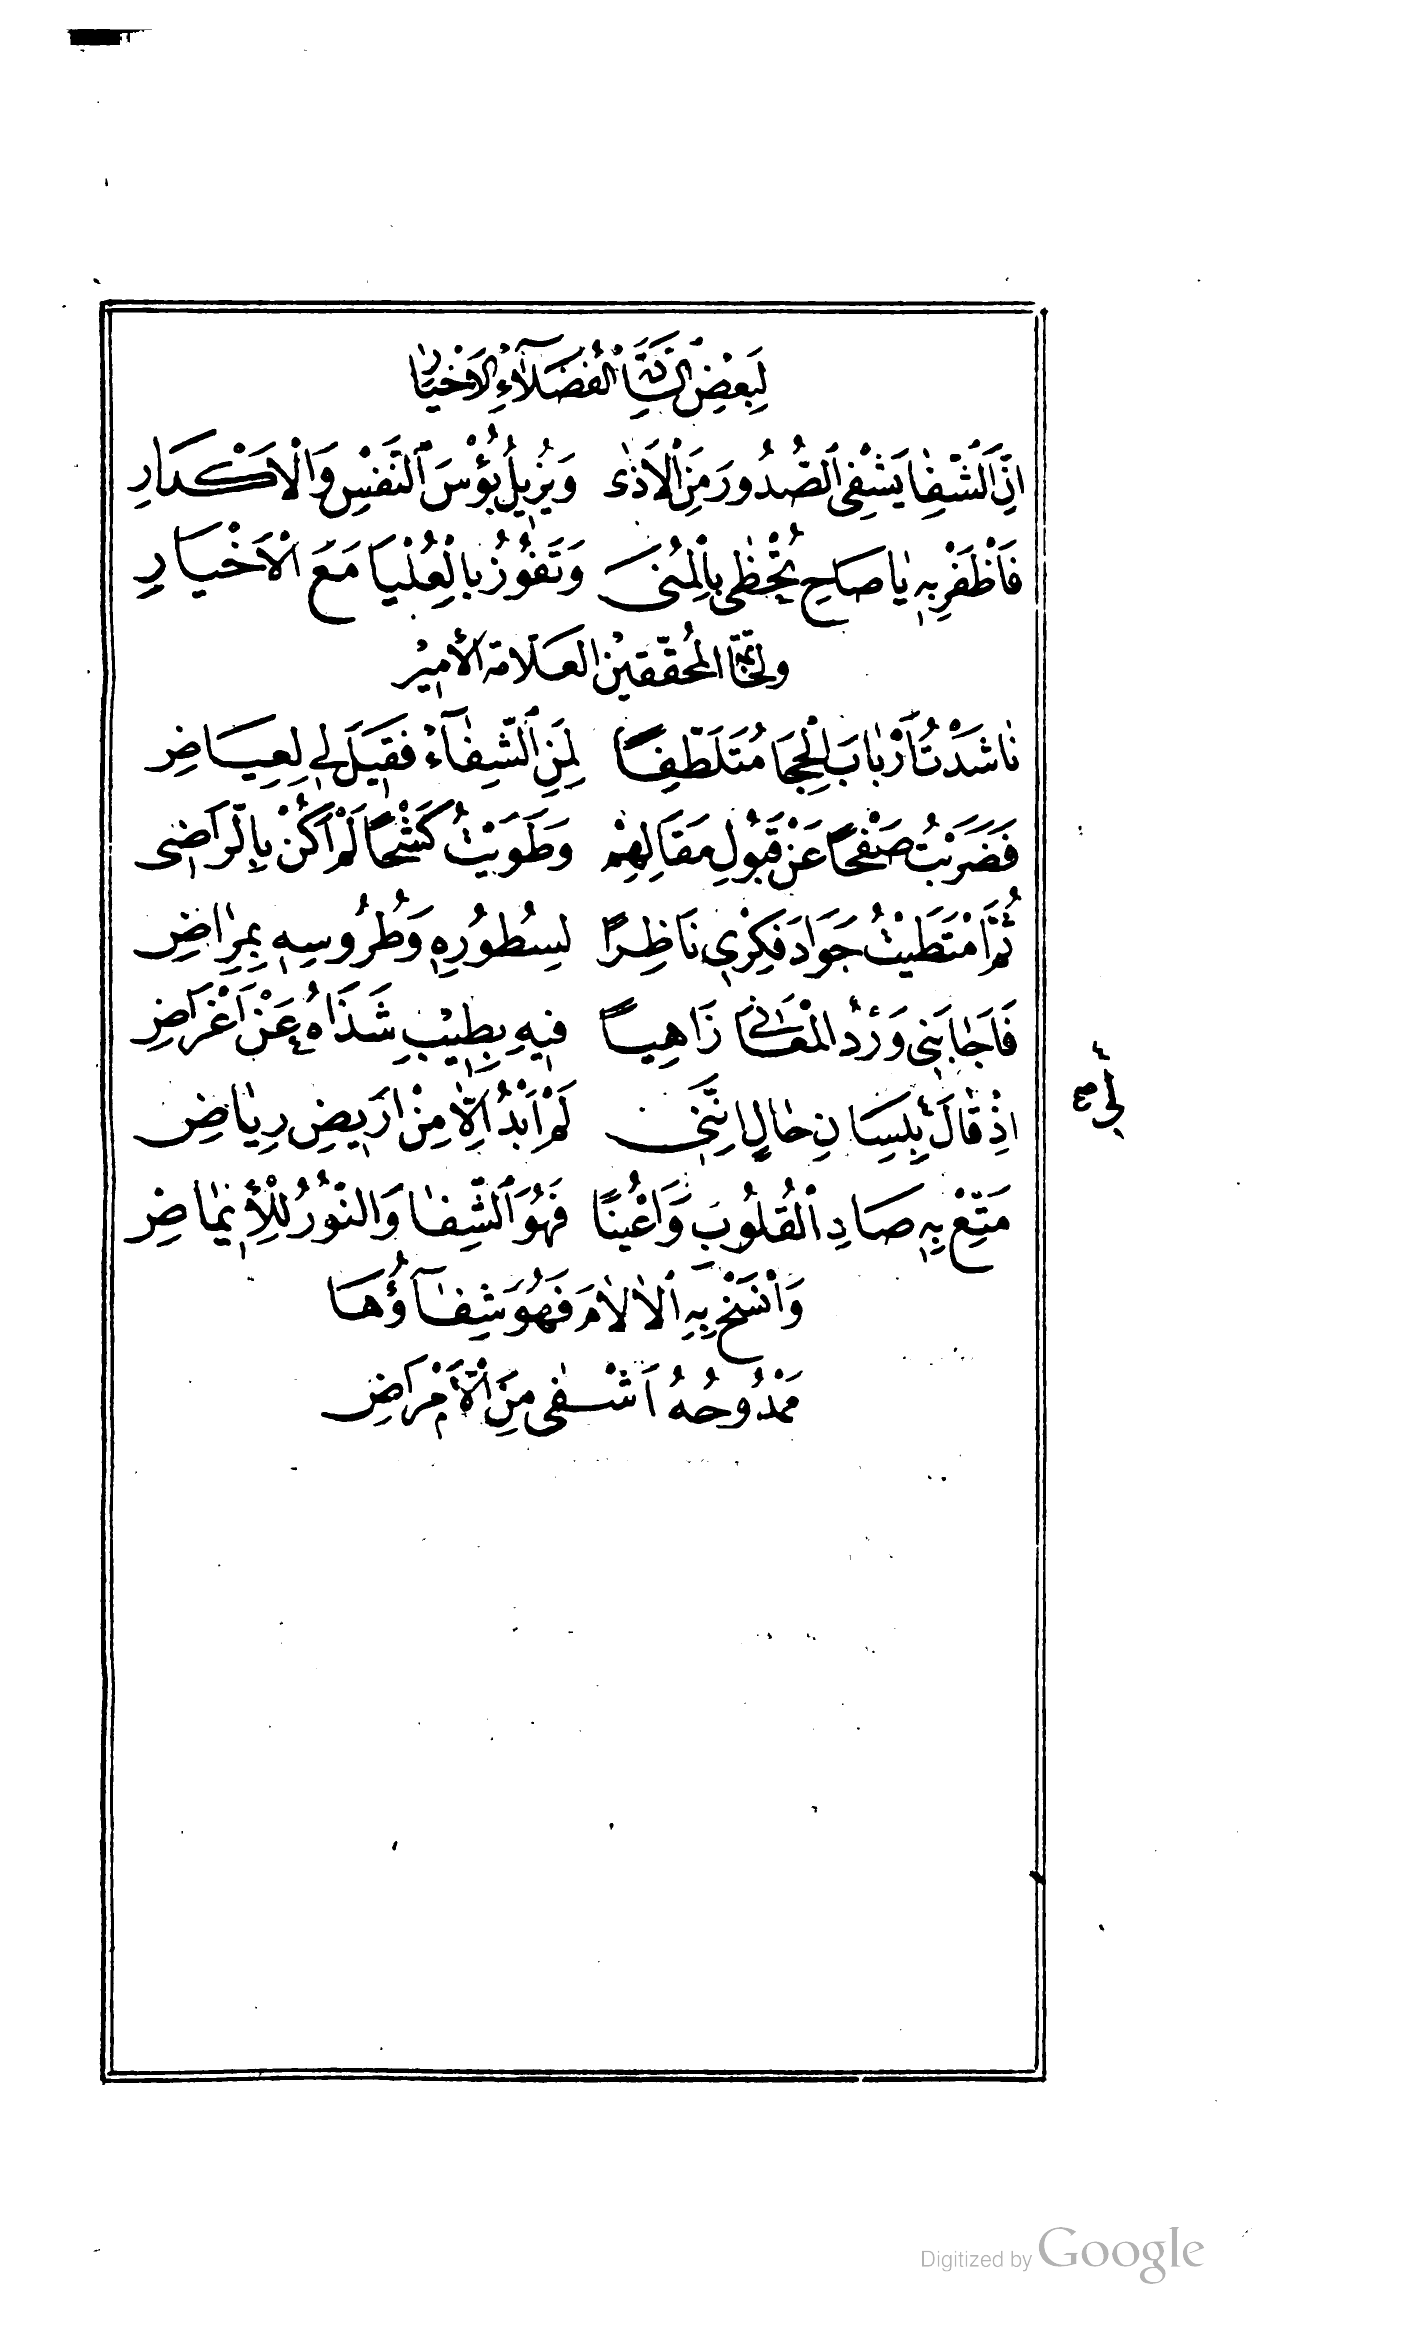 لِبَعْضِ السَّادَةِ الْفُضَلَآءِ الْاَخْيَارِ
اِنَّ الشِّفَا يَشْفِى الصُّدُورَ مِنَ الْاَذٰى وَيُزِيلُ بُؤْسَ النَّفْسِ وَالْاَكْدَارِ
فَاَظْفَرْ بِهِ يَا صَاحِ تُحْظٰى بِالْمُنَى وَتَفُوزُ بِالْعُلْيَا مَعَ الْاَخْيَارِ
ولخاتمة المحققين العلامة الأمير
نَاشَدْتُ اَرْبَابَ الْحِجَا مُتَلَطِّفًا لِمَنِ الشِّفَآءُ فَقِيلَ لِى لِعِيَاضِ
فَضَرَبْتُ صَفْحًا عَنْ قَبُولِ مَقَالِهِمْ وَطَوَيْتُ كَشْحًا لَمْ اَكُنْ بِالرَّاضِى
ثُمَّ امْتَطَيْتُ جَوَادَ فِكْرِى نَاظِرًا لِسُطُورِهِ وَطُرُوسِهِ بِمِرَاضِ
فَاَجَابَنِى وَرْدُ الْمَعَانِى زَاهِيًا فِيهِ بِطِيبِ شَذَاهُ عَنْ اَغْرَاضِ
اِذْ قَالَ ٤ بِلِسَانِ حَالٍ اِنَّنِى لَمْ اَبْدُ اِلَّا مِنْ اَرِيضِ رِيَاضِ
٤ لى صح
مَتِّعْ بِهِ صَادِ الْقُلُوبَ وَاَعْيُنًا فَهُوَ الشِّفَا وَالنُّورُ لِلْأِيمَاضِ
وَانْسَخْ بِهِ الْاٰلَامَ فَهُوَ شِفَآؤُهَا
مَمْدُوحُهُ اَشْفٰى مِنَ الْأَمْرَاضِ
Digitized by Google